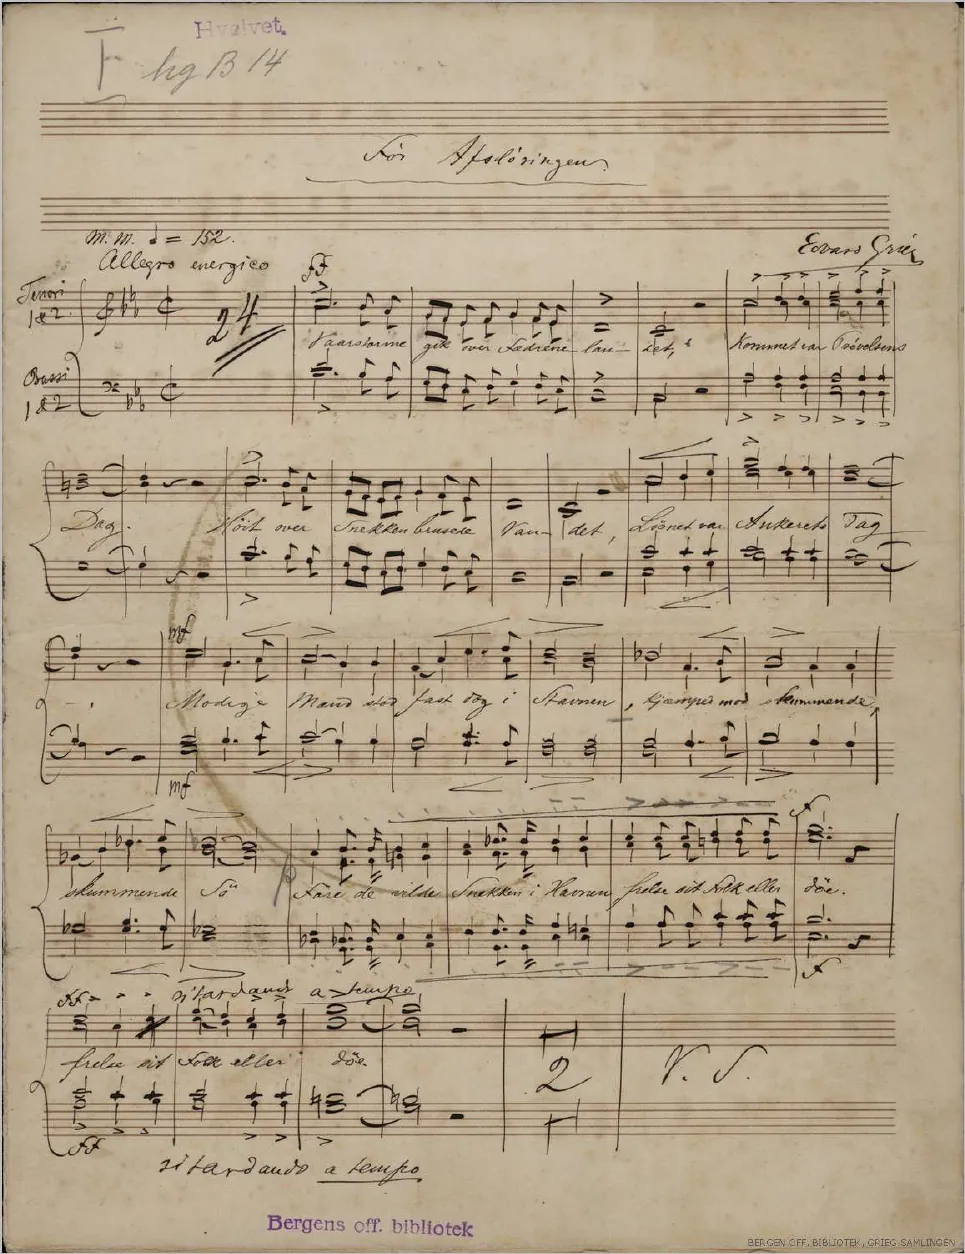 Hvelvet.
F hg B 14
För Afslöringen.
M. M. = 152.
Allegro energico
ff
Edvard Grieg
Tenori
1 & 2.
24
Vaarstorme gik over Fædrene lan - det, Kommet var Prövelsens
Bassi
1 & 2
Dag. Höit over Snekken brusede Van - det, Lösnet var Ankerets Tag
mf
Modige Mand stod fast dog i Stavnen, kjæmped mod skummende,
mf
f
skummende Sö Före de vilde Snekken i Havnen frelse sit Folk eller döe.
p
f
ff ritardando a tempo
frelse sit Folk eller döe.
2 V. S.
ff
ritardando a tempo
Bergens off. bibliotek
BERGEN OFF. BIBLIOTEK, GRIEG SAMLINGEN